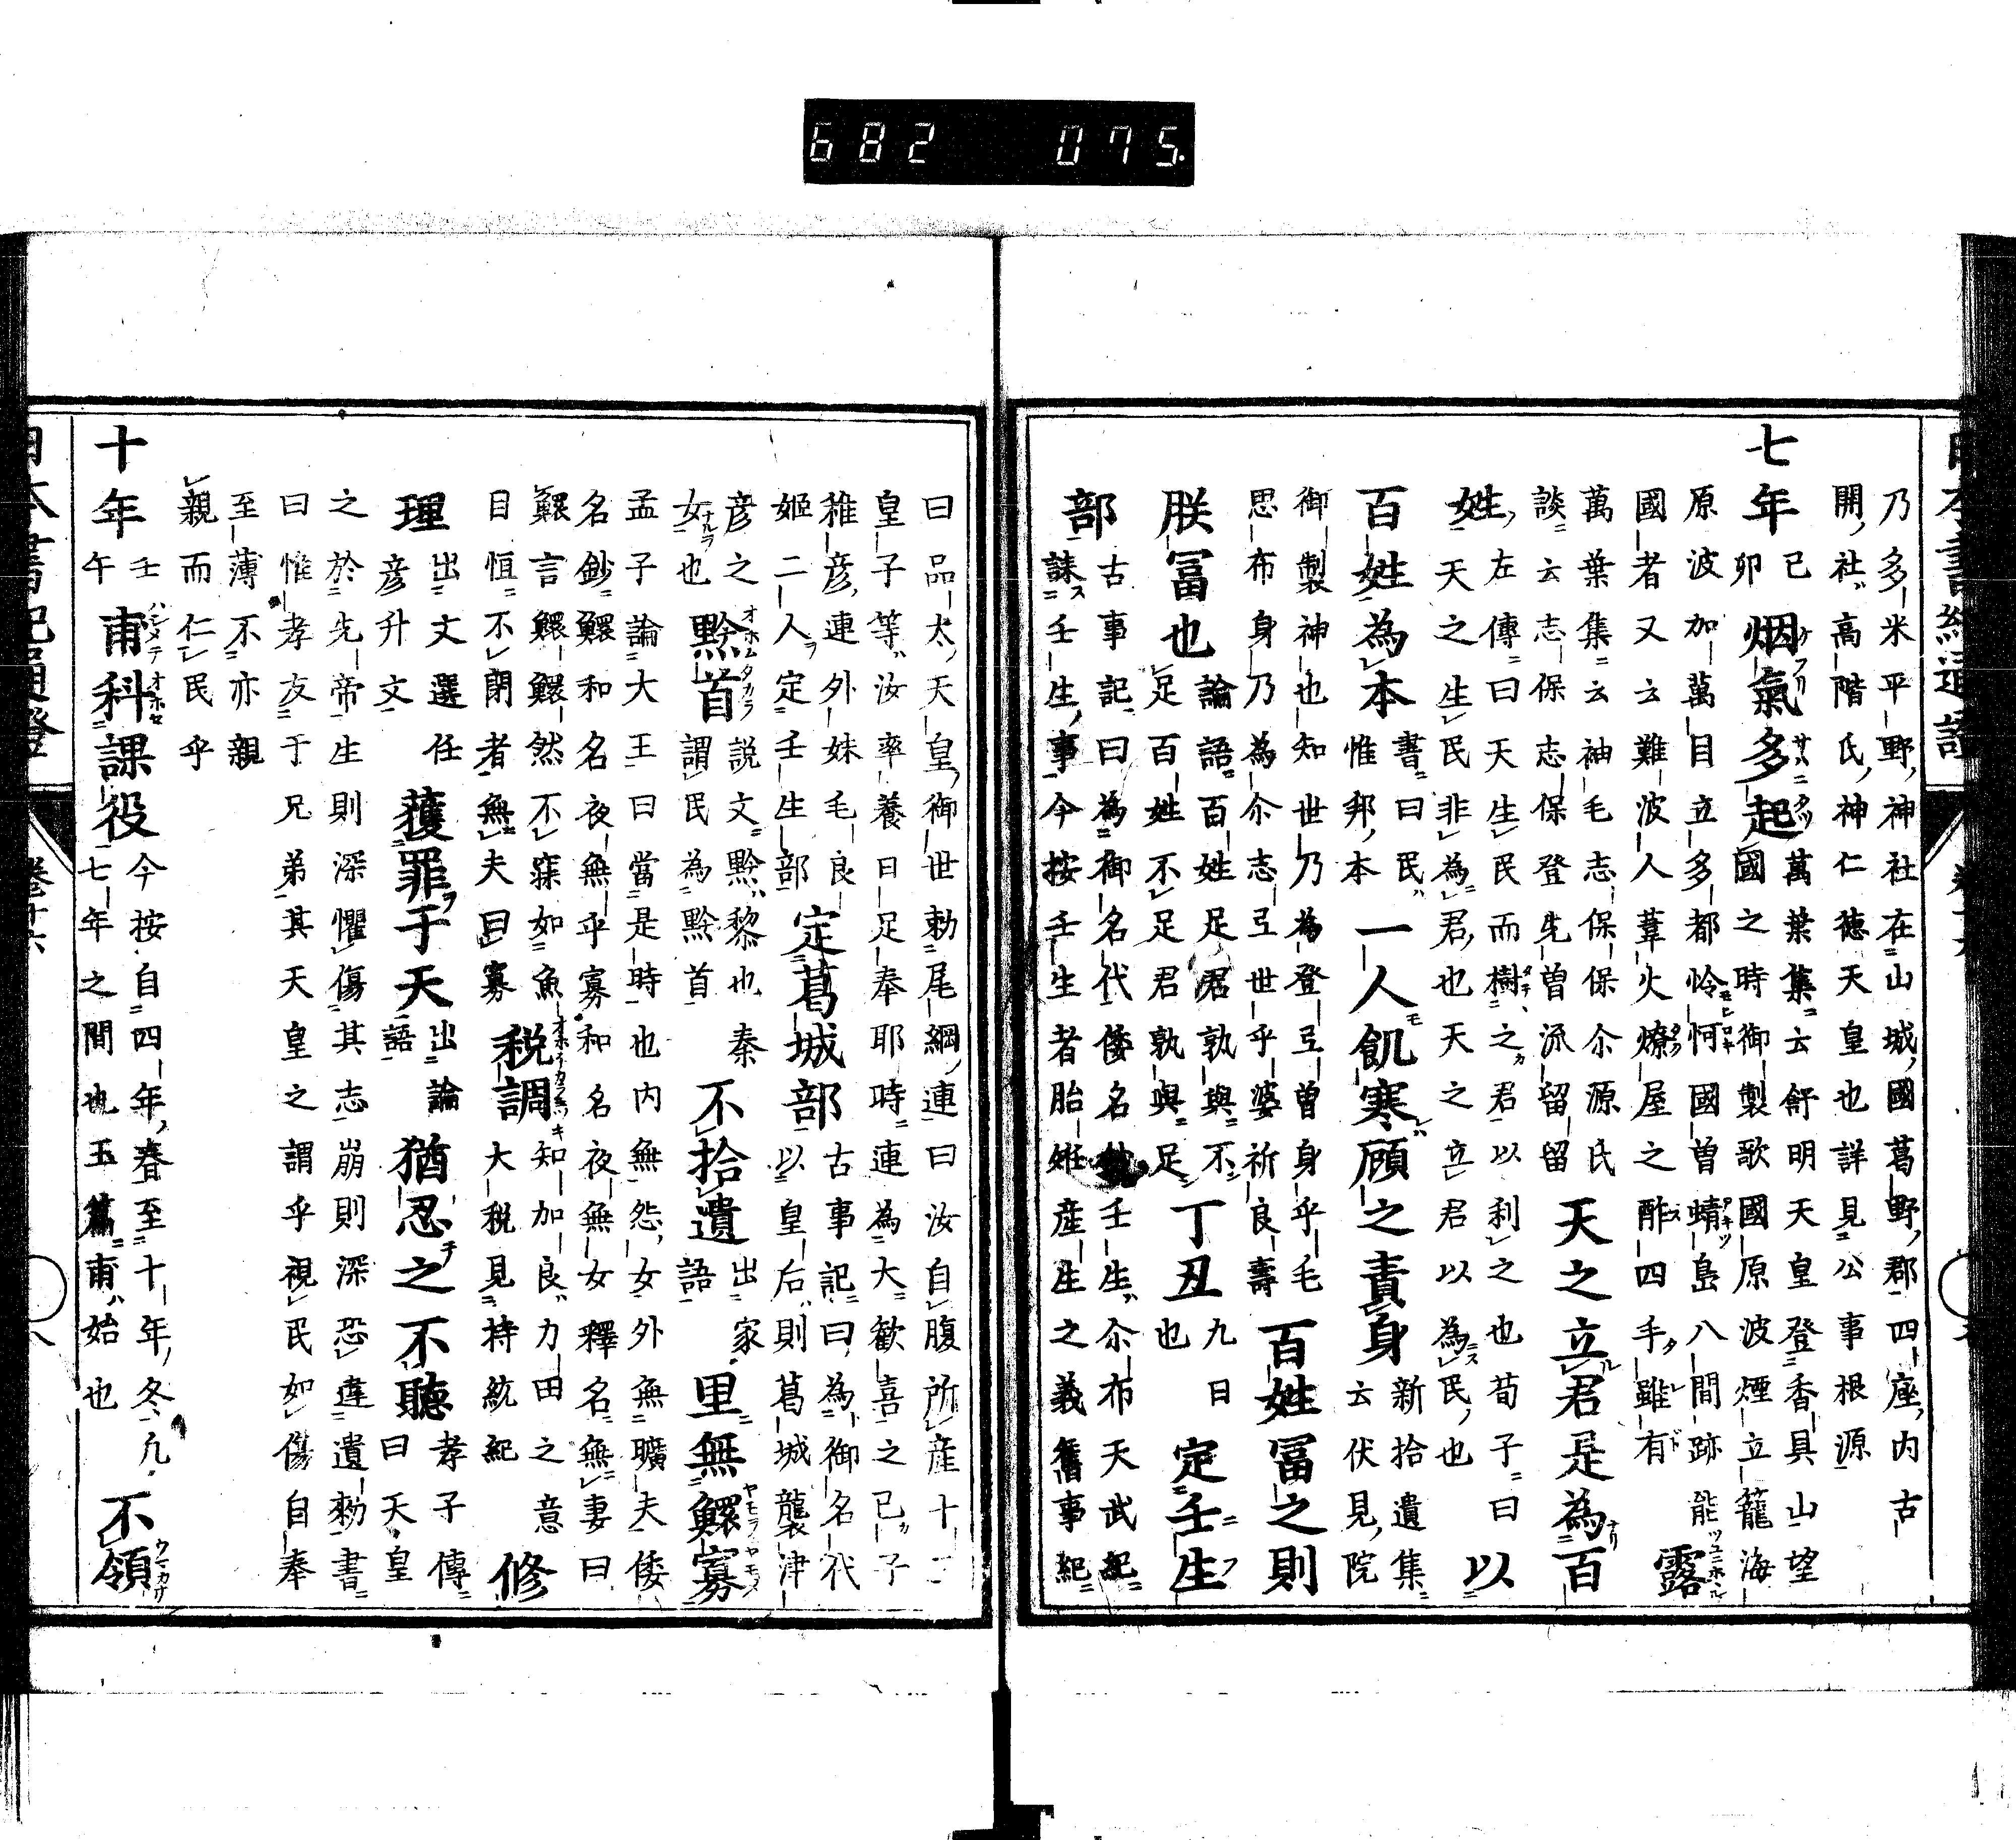 682 075.
乃多米平野神社在山城國葛野郡四座内古
開社高階氏神仁德天皇也詳見公事根源
七年己卯烟氣多起萬葉集云舒明天皇登香具山望
國之時御製歌國原波煙立籠海
原波加萬目立多都怜怐國曽蜻島八間跡能 露
國者又云難波人葦火燎屋之酢四手雖有
萬葉集云袖毛志保保尓源氏 天之立君是為百
談云志保志保登先曽流留留
姓左傳曰天生民而樹之君以利之也荀子曰 以
天之生民非為君也天之立君以為民也
百姓為本書曰民惟邦本 一人飢寒顧之責身新拾遺集云伏見院
御製神也知世乃為登弖曽身乎毛 百姓冨之則
思布身乃為尓志弖世乎婆祈良壽
朕冨也論語百姓足君孰與不足百姓不足君孰與足 丁丑九日也 定壬生
部古事記曰為御名代倭名鈔壬生尓布天武紀
誄壬生事今按壬生者胎姙産生之義舊事紀
曰品太天皇御世勅尾綱連曰汝自腹所産十二
皇子等汝率養日足奉耶時連為大歓喜之己子
稚彦連外妹毛良 定葛城部古事記曰為御名代
姫二人定壬生部 以皇后則葛城襲津
彦之女也 黔首説文黔黎也秦謂民為黔首 不拾遺出家語 里無鰥寡
孟子論大王曰當是時也内無怨女外無曠夫倭
名鈔鰥和名夜無乎寡和名夜無女釋名無妻曰
鰥言鰥鰥然不寐如魚目恒不閉者無夫曰寡 税調知加良力田之意大税見持統紀 修
理出文選任彦升文 獲罪于天出論語 猶忍之不聽孝子傳曰天皇
之於先帝生則深懼傷其志崩則深恐違遺勅書
曰惟孝友于兄弟其天皇之謂乎視民如傷自奉
至薄不亦親
親而仁民乎
十年壬午甫科課役今按自四年春至十年冬凡七年之間也玉篇甫始也 不領